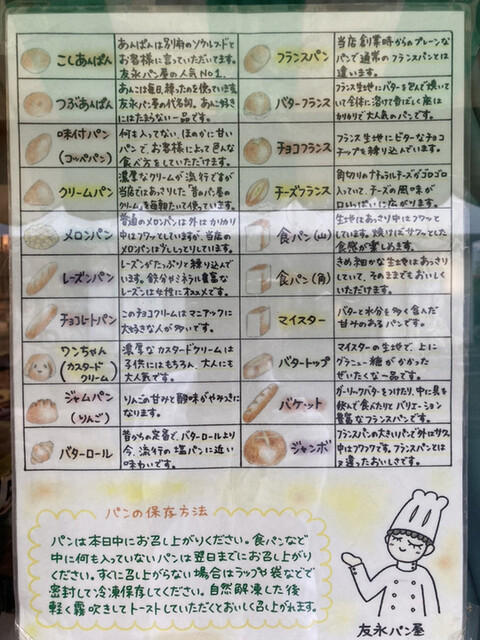 こしあんぱん
あんぱんは別府のソウルフードと
お客様に言っていただいてます。
友永パン屋の人気No1.
つぶあんぱん
あんこは毎日、練ったのを使っています。
友永パン屋の代名詞。あんこ好きに
はたまらない一品です。
味付パン
(コッペパン)
何も入ってない、ほのかに甘い
パンで、お客様によって色んな
食べ方をしていただけます。
クリームパン
濃厚なクリームが流行ですが
当店ではあっさりした「昔のパン屋の
クリーム」を毎朝たいて使っています。
メロンパン
普通のメロンパンは外はかりかり
中はフワッとしていますが、当店の
メロンパンは少ししっとりしています。
レーズンパン
レーズンがたっぷりと練り込んで
います。鉄分やミネラル豊富な
レーズンは女性にオススメです。
チョコレートパン
このチョコクリームはマニアックに
大好きな人が多いです。
ワンちゃん
(カスタード
クリーム)
濃厚なカスタードクリームは
子供にはもちろん、大人にも
大人気です。
ジャムパン
(りんご)
りんごの甘みと酸味がやみつきに
なります。
バターロール
昔からの定番で、バターロールより
今、流行の塩パンに近い
味わいです。
フランスパン
当店創業時からのプレーンな
パンで通常のフランスパンとは
違います。
バターフランス
フランス生地にバターを包んで焼いて
いて全体に溶けて香ばしく底は
かりかりで大人気のパンです。
チョコフランス
フランス生地にビターなチョコ
チップを練り込んでいます。
チーズフランス
角切りのナチュラルチーズがゴロゴロ
入っていて、チーズの風味が
口いっぱいに広がります。
食パン(山)
生地はあっさり中はフワッと
しています。焼けばサクッとした
食感が楽しめます。
食パン(角)
きめ細かな生地はあっさり
していて、そのままでもおいしく
いただけます。
マイスター
バターと水分を多く含んだ
甘みのあるパンです。
バタートップ
マイスターの生地で、上に
グラニュー糖がかかった
ぜいたくな一品です。
バケット
ガーリックバターをつけたり、中に具を
挟んで食べたりとバリエーション
豊富なフランスパンです。
ジャンボ
フランスパンの大きいパンで外はサクッ
中はフワフワです。フランスパンとは
又違ったおいしさです。
パンの保存方法
パンは本日中にお召し上がりください。食パンなど
中に何も入っていないパンは翌日までにお召し上がり
ください。すぐに召し上がらない場合はラップや袋などで
密封して冷凍保存してください。自然解凍した後
軽く霧吹きしてトーストしていただくとおいしく召し上がれます。
友永パン屋